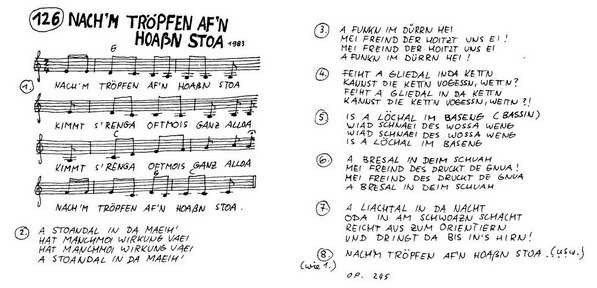 126 NACH'M TRÖPFEN AF'N
HOAßN STOA 1983
G
1. NACH'M TRÖPFEN AF'N HOAßN STOA
KIMMT S'RENGA OFTMOIS GANZ ALLOA
C
KIMMT S'RENGA OFTMOIS GANZ ALLOA
G C
NACH'M TRÖPFEN AF'N HOAßN STOA.
2. A STOANDAL IN DA MAEIH'
HAT MANCHMOI WIRKUNG VAEI
HAT MANCHMOI WIRKUNG VAEI
A STOANDAL IN DA MAEIH!
3. A FUNKN IM DÜRRN HEI
MEI FREIND DER HOITZT UNS EI!
MEI FREIND DER HOITZT UNS EI
A FUNKN IM DÜRRN HEI!
4. FEIHT A GLIEDAL IN DA KETT'N
KANNST DIE KETT'N VOGESSN, WETT'N?
FEIHT A GLIEDAL IN DA KETT'N
KANNST DIE KETT'N VOGESSN, WETT'N?!
5. IS A LÖCHAL IM BASENG (BASSIN)
WIAD SCHNAEI DES WOSSA WENG
WIAD SCHNAEI DES WOSSA WENG
IS A LÖCHAL IM BASENG
6. A BRESAL IN DEIM SCHUAH
MEI FREIND DES DRUCKT DE GNUA!
MEI FREIND DES DRUCKT DE GNUA
A BRESAL IN DEIM SCHUAH
7. A LIACHTAL IN DA NACHT
ODA IN AM SCHWOAZN SCHACHT
REICHT AUS ZUM ORIENTIERN
UND DRINGT DA BIS IN'S HIRN!
8. NACH'M TRÖPFEN AF'N HOAßN STOA.. (usw.)
(wie 1.)
OP. 245